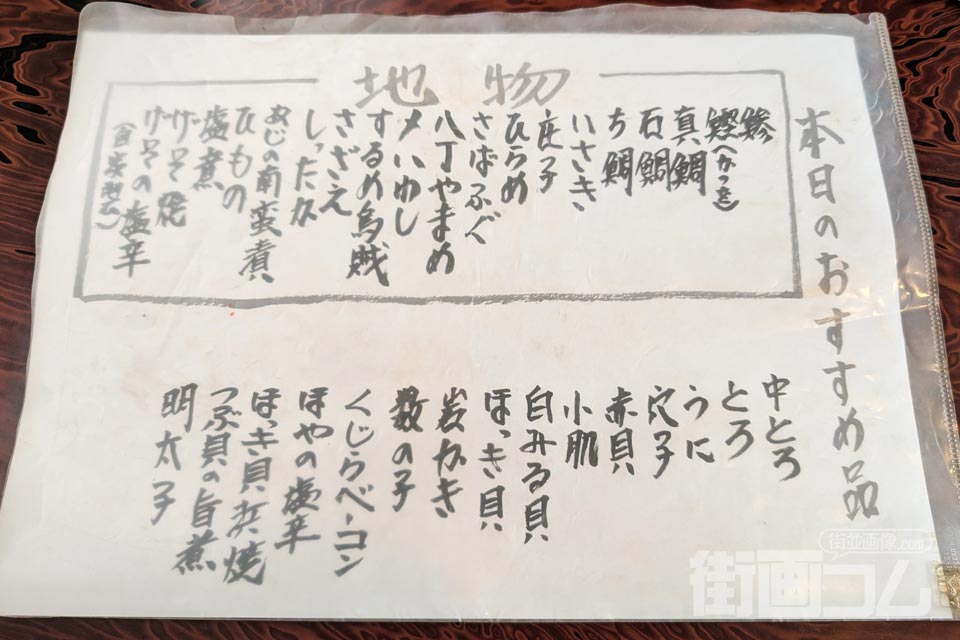 本日のおすすめ品
地物
鯵
鰹(かつを)
真鯛
石鯛
ち鯛
いさき
ひらめ
さばふぐ
八丁やまめ
〆いわし
するめ烏賊
さざえ
しったか
あじの南蛮漬
ひもの
塩煮
げそ焼
げその塩辛
中とろ
とろ
うに
穴子
赤貝
小肌
白みる貝
ほっき貝
岩がき
数の子
くじらベーコン
ほやの塩辛
ほっき貝兵焼
つぶ貝の旨煮
明太子
街並画像.com
街画コム